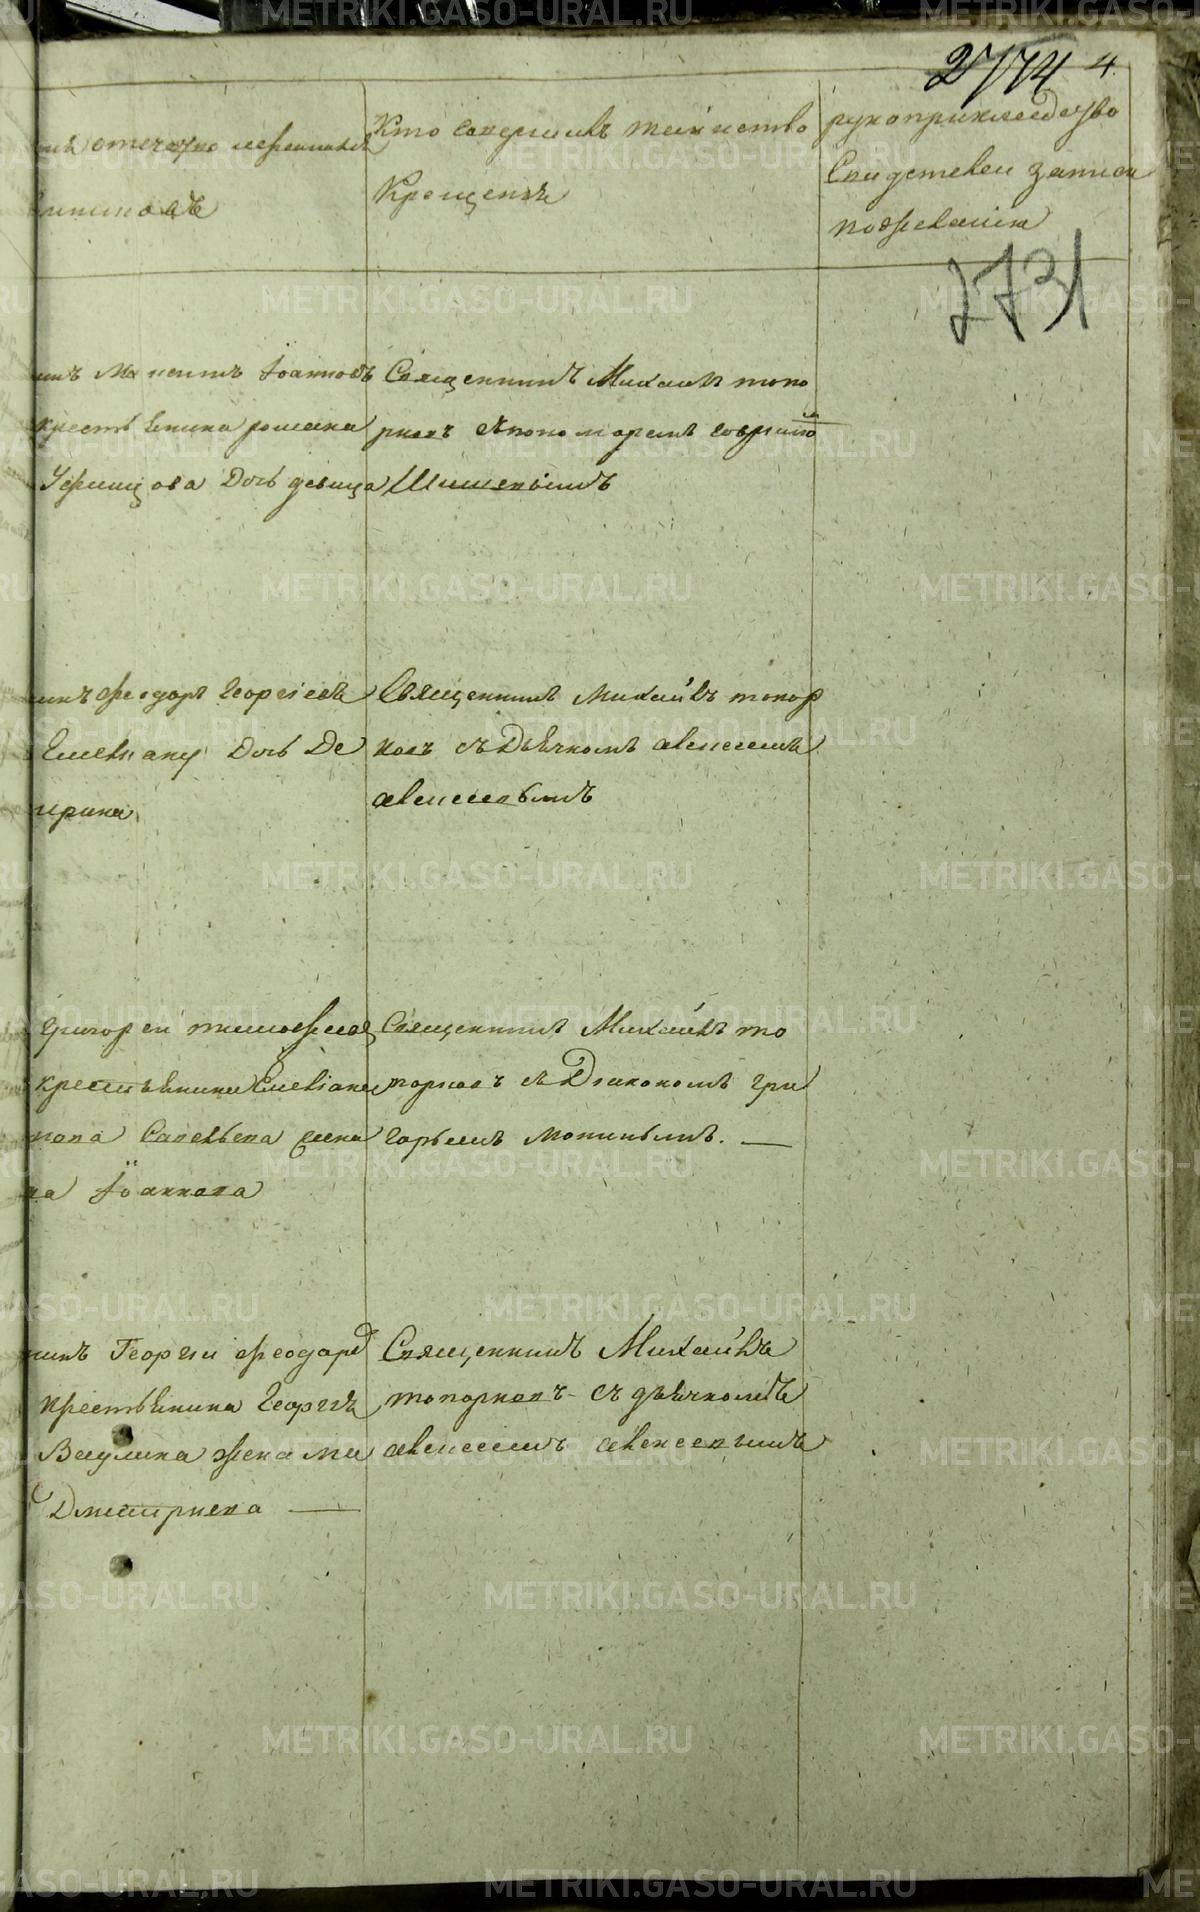 2774 4.
отечество
Кто совершалъ таинство
Крещенія
рукоприкладство
Свидетелей записи
по желанію
2731
Максимъ Іоанновъ
крестьянина романа
дочь девица
Священникъ Михаилъ топо
рковъ спономаремъ
Шишевымъ
Феодоръ Георгіевъ
Емельяну Дочь
ирина
Священникъ Михаилъ топор
ковъ съ Дьячкомъ алексеемъ
алексеевымъ
Григорей тимофеев
крестьянина Емеліана
Савельева
Іоаннова
Священникъ Михаилъ то
порковъ съ Диакономъ гри
горьемъ мокинымъ.
Георгіи феодоров
крестьянина Георгія
Ваулина жена
Дмитриева
Священникъ Михаилъ
топорковъ съ дьячкомъ
алексеемъ алексеевымъ
METRIKI.GASO-URAL.RU